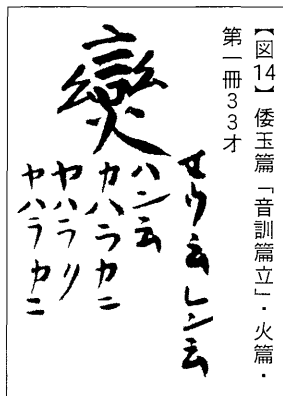 【図14】倭玉篇「音訓篇立」・火篇・
第一冊33才
セウ云レン云
ハン云
カハラカニ
ヤハラリ
ヤハラカニ